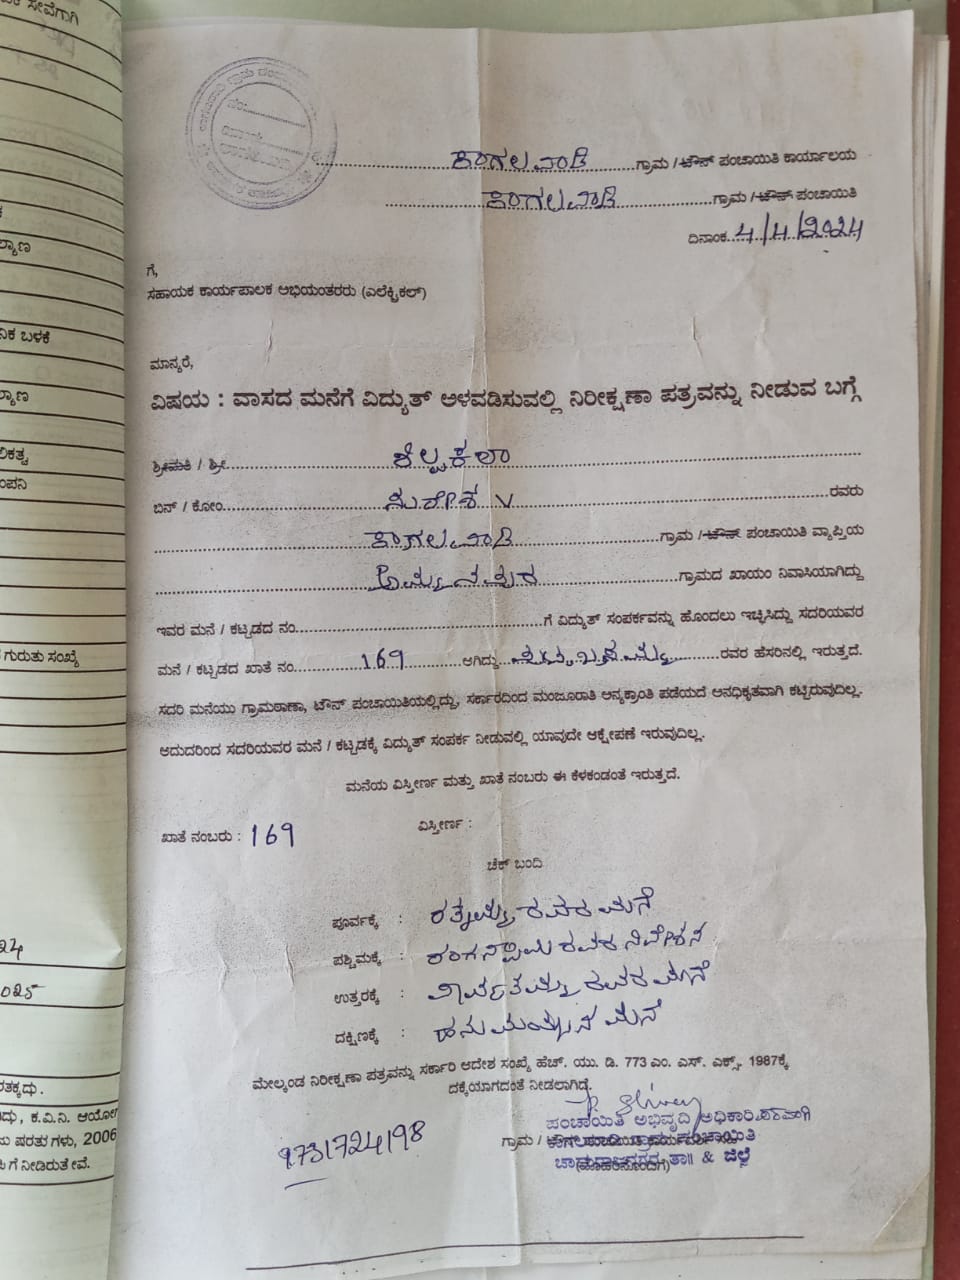 ಕಾಗಲವಾಡಿ ಗ್ರಾಮ / ಟೌನ್ ಪಂಚಾಯಿತಿ ಕಾರ್ಯಾಲಯ
ಕಾಗಲವಾಡಿ ಗ್ರಾಮ / ಟೌನ್ ಪಂಚಾಯಿತಿ
ದಿನಾಂಕ 4/4/2024
ಗೆ,
ಸಹಾಯಕ ಕಾರ್ಯಪಾಲಕ ಅಭಿಯಂತರರು (ಎಲೆಕ್ಟ್ರಿಕಲ್)
ಮಾನ್ಯರೆ,
ವಿಷಯ : ವಾಸದ ಮನೆಗೆ ವಿದ್ಯುತ್ ಅಳವಡಿಸುವಲ್ಲಿ ನಿರೀಕ್ಷಣಾ ಪತ್ರವನ್ನು ನೀಡುವ ಬಗ್ಗೆ
ಶ್ರೀಮತಿ / ಶ್ರೀ ಶಿಲ್ಪಕಲಾ
ಬಿನ್ / ಕೋಂ ಸುರೇಶ V ರವರು
ಕಾಗಲವಾಡಿ ಗ್ರಾಮ / ಟೌನ್ ಪಂಚಾಯಿತಿ ವ್ಯಾಪ್ತಿಯ
ಗ್ರಾಮದ ಖಾಯಂ ನಿವಾಸಿಯಾಗಿದ್ದು
ಇವರ ಮನೆ / ಕಟ್ಟಡದ ನಂ. ಗೆ ವಿದ್ಯುತ್ ಸಂಪರ್ಕವನ್ನು ಹೊಂದಲು ಇಚ್ಛಿಸಿದ್ದು ಸದರಿಯವರ
ಮನೆ / ಕಟ್ಟಡದ ಖಾತೆ ನಂ. 169 ಆಗಿದ್ದು ರವರ ಹೆಸರಿನಲ್ಲಿ ಇರುತ್ತದೆ.
ಸದರಿ ಮನೆಯು ಗ್ರಾಮಠಾಣಾ, ಟೌನ್ ಪಂಚಾಯಿತಿಯಲ್ಲಿದ್ದು, ಸರ್ಕಾರದಿಂದ ಮಂಜೂರಾತಿ ಅನ್ಯಕ್ರಾಂತಿ ಪಡೆಯದೆ ಅನಧಿಕೃತವಾಗಿ ಕಟ್ಟಿರುವುದಿಲ್ಲ.
ಆದುದರಿಂದ ಸದರಿಯವರ ಮನೆ / ಕಟ್ಟಡಕ್ಕೆ ವಿದ್ಯುತ್ ಸಂಪರ್ಕ ನೀಡುವಲ್ಲಿ ಯಾವುದೇ ಆಕ್ಷೇಪಣೆ ಇರುವುದಿಲ್ಲ.
ಮನೆಯ ವಿಸ್ತೀರ್ಣ ಮತ್ತು ಖಾತೆ ನಂಬರು ಈ ಕೆಳಕಂಡಂತೆ ಇರುತ್ತದೆ.
ಖಾತೆ ನಂಬರು : 169 ವಿಸ್ತೀರ್ಣ :
ಚೆಕ್ ಬಂದಿ
ಪೂರ್ವಕ್ಕೆ : ರತ್ನಮ್ಮ ರವರ ಮನೆ
ಪಶ್ಚಿಮಕ್ಕೆ : ರಂಗಸ್ವಾಮಿ ರವರ ನಿವೇಶನ
ಉತ್ತರಕ್ಕೆ : ಪಾರ್ವತಮ್ಮ ರವರ ಮನೆ
ದಕ್ಷಿಣಕ್ಕೆ : ಹನುಮಯ್ಯನ ಮನೆ
ಮೇಲ್ಕಂಡ ನಿರೀಕ್ಷಣಾ ಪತ್ರವನ್ನು ಸರ್ಕಾರಿ ಆದೇಶ ಸಂಖ್ಯೆ ಹೆಚ್. ಯು. ಡಿ. 773 ಎಂ. ಎಸ್. ಎಕ್ಸ್. 1987ಕ್ಕೆ
ದಕ್ಕೆಯಾಗದಂತೆ ನೀಡಲಾಗಿದೆ.
ಪಂಚಾಯಿತಿ ಅಭಿವೃದ್ಧಿ ಅಧಿಕಾರಿ
ಗ್ರಾಮ /
ಚಾಮರಾಜನಗರ ತಾ|| & ಜಿಲ್ಲೆ
(ಮೊಹರಿನೊಂದಿಗೆ)
9731724198